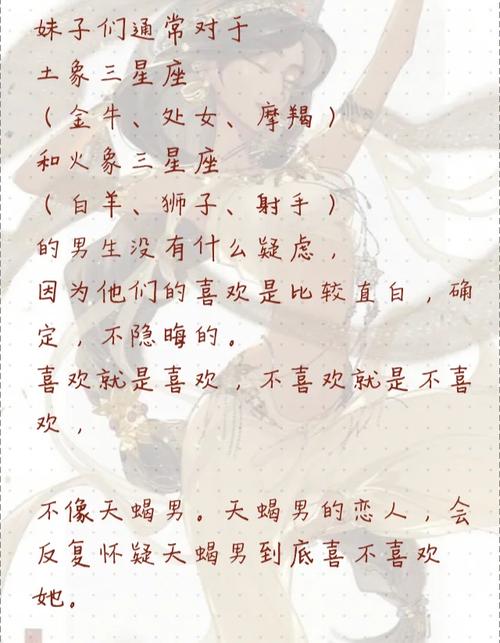 妹子们通常对于
土象三星座
（金牛、处女、摩羯）
和火象三星座
（白羊、狮子、射手）
的男生没有什么疑虑，
因为他们的喜欢是比较直白，确
定，不隐晦的。
喜欢就是喜欢，不喜欢就是不喜
欢，
不像天蝎男。天蝎男的恋人，会
反复怀疑天蝎男到底喜不喜欢
她。